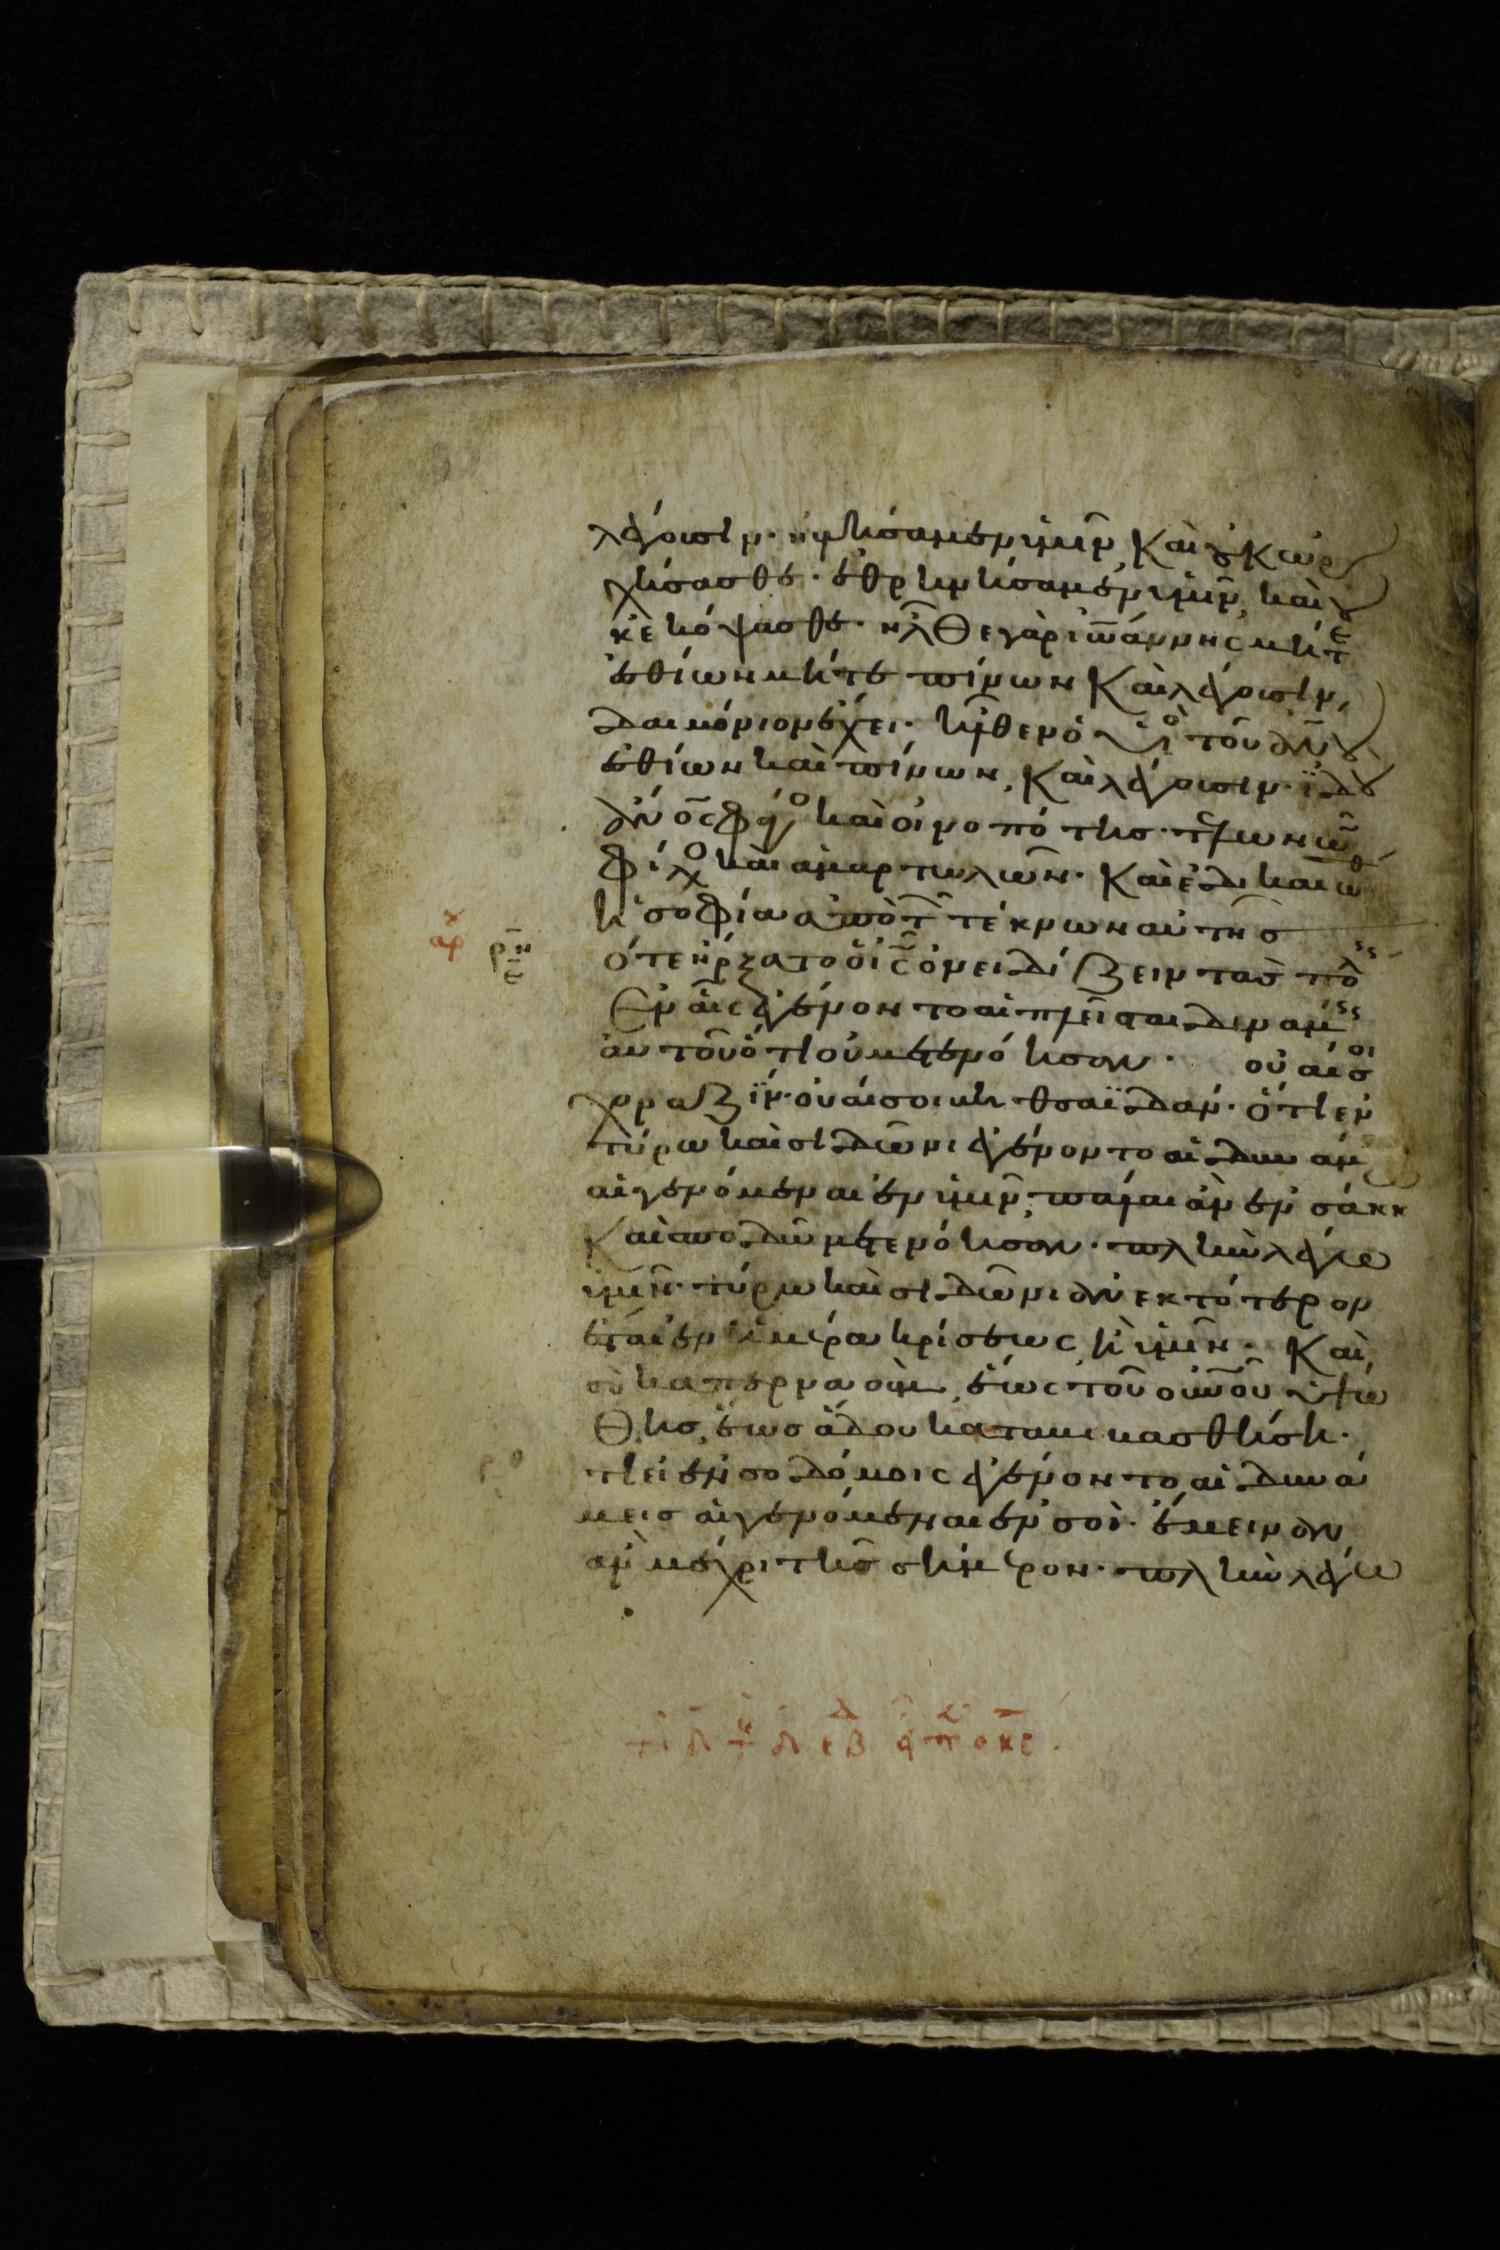 λέγουσιν· ηὐλήσαμεν ὑμῖν, καὶ οὐκ ὠρ
χήσασθε· ἐθρηνήσαμεν ὑμῖν, καὶ οὐ
κὲ κόψασθε· ἦλθε γὰρ ἰωάννης μήτε
ἐσθίων μήτε πίνων καὶ λέγουσιν,
δαιμόνιον ἔχει· ἦλθεν ὁ υἱὸ τοῦ ἀνου
ἐσθίων καὶ πίνων, καὶ λέγουσιν· ἰδοὺ
ἀνος φάγο καὶ οἰνοπότης· τελωνῶ
φίλο καὶ ἁμαρτωλῶν· καὶ ἐδικαιώθ
ἡ σοφία ἀπὸ τ τέκνων αὐτῆσ
ὅτε ἤρξατο ὁ ις ὀνειδίζειν τὰσ πόλεις
ἐν αἷς ἐγένοντο αἱ πλεῖσται δυνάμεις
αὐτοῦ ὅτι οὐ μετενόησαν· οὐαί σοι
χοραζίν· οὐαί σοι βηθσαϊδάν· ὅτι ἐν
τύρω καὶ σιδῶνι ἐγένοντο αἱ δυνάμ
αἱ γενόμεναι ἐν ὑμῖν, πάλαι ἂν ἐν σάκκ
καὶ σποδῶ μετενόησαν· πλὴν λέγω
ὑμῖν· τύρω καὶ σιδῶνι ἀνεκτότερον
ἔσται ἐν ἡμέρα κρίσεως ἢ ὑμῖν· καὶ
σὺ καπερναούμ, ἕως τοῦ οὐνοῦ ὑψω
θῆσ, ἕωσ ἅδου καταβιβασθήση·
ὅτι εἰ ἐν σοδόμοις ἐγένοντο αἱ δυνά
μεισ αἱ γενόμεναι ἐν σοὶ· ἔμειναν
ἂν μέχρι τῆσ σήμερον· πλὴν λέγω